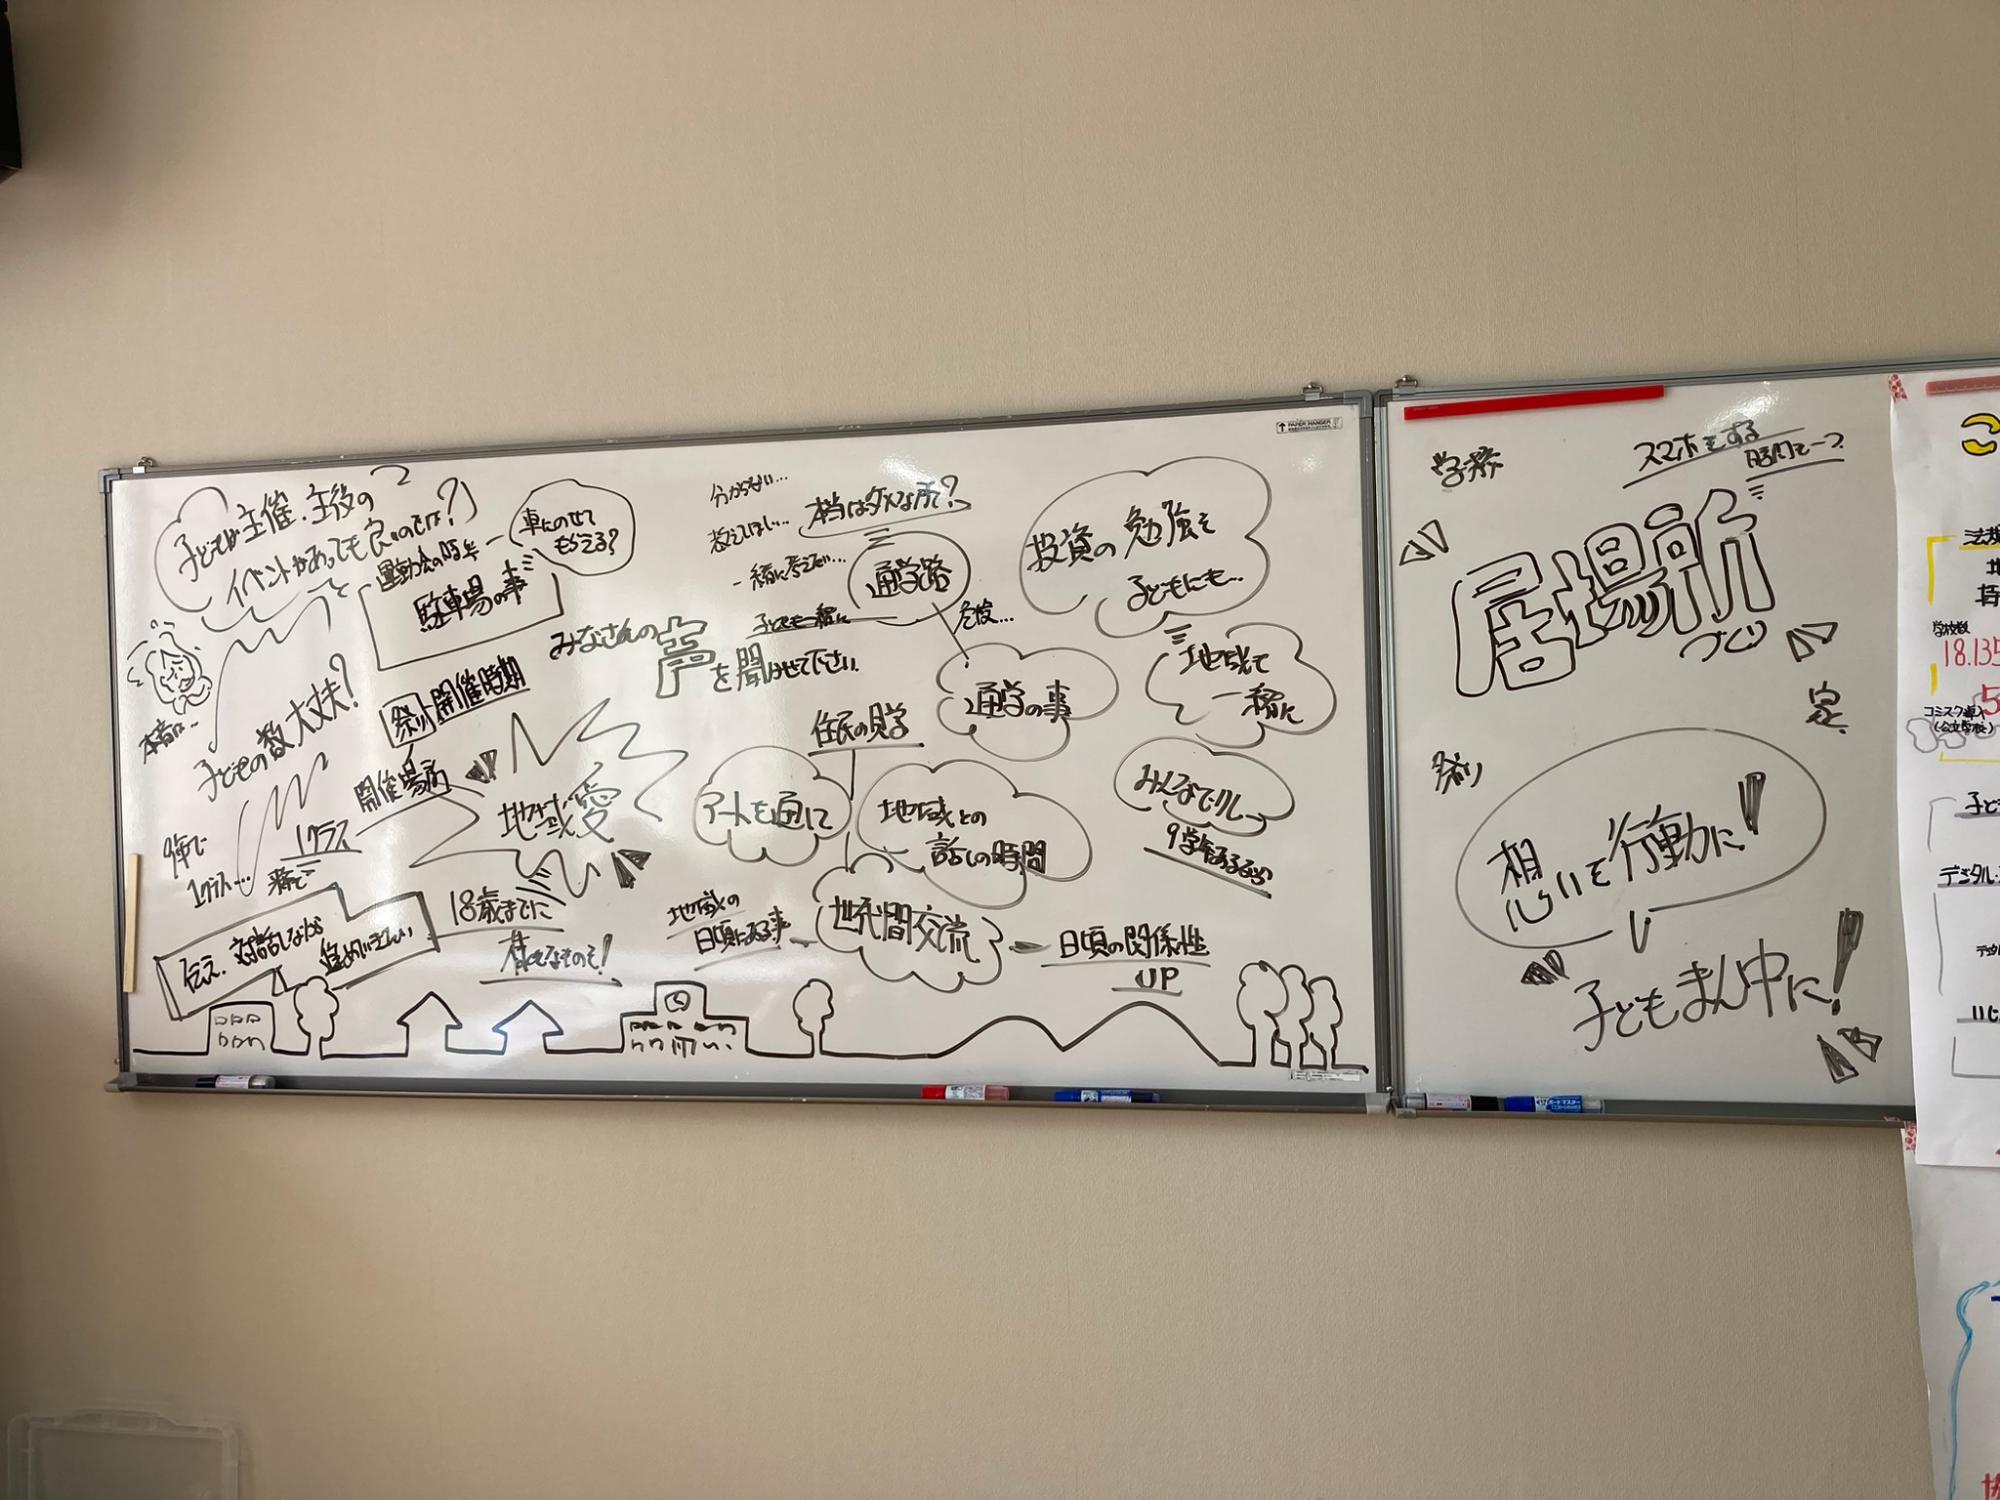 子どもが主催・主役の
イベントがあっても良いのでは?
運動会の時等
車にのせて
もらえる?
駐車場の事
本音は…
子どもの数大丈夫?
祭り開催時期
開催場所
地域愛
9年で
1クラス…
1クラス
伝え、対話しながら
進めていきたい
18歳までに
分からない…
教えてほしい…
一緒に考えたい…
本当はダメな所?
子どもも一緒に
通学路
危険…
通学の事
みなさんの声を聞かせて下さい
投資の勉強を
子どもにも…
地域で
一緒に
住民の見学
アートを通して
地域との
話しの時間
世代間交流
地域の
日頃にある事
日頃の関係性
UP
スマホをする
居場所
づくり
祭り
想いを行動に!
子どもまん中に!
こ
学校数
18.135
コミスク導入
(公立学校)
5
子ど
デジタル
いじ
↑ PAPER HANGER